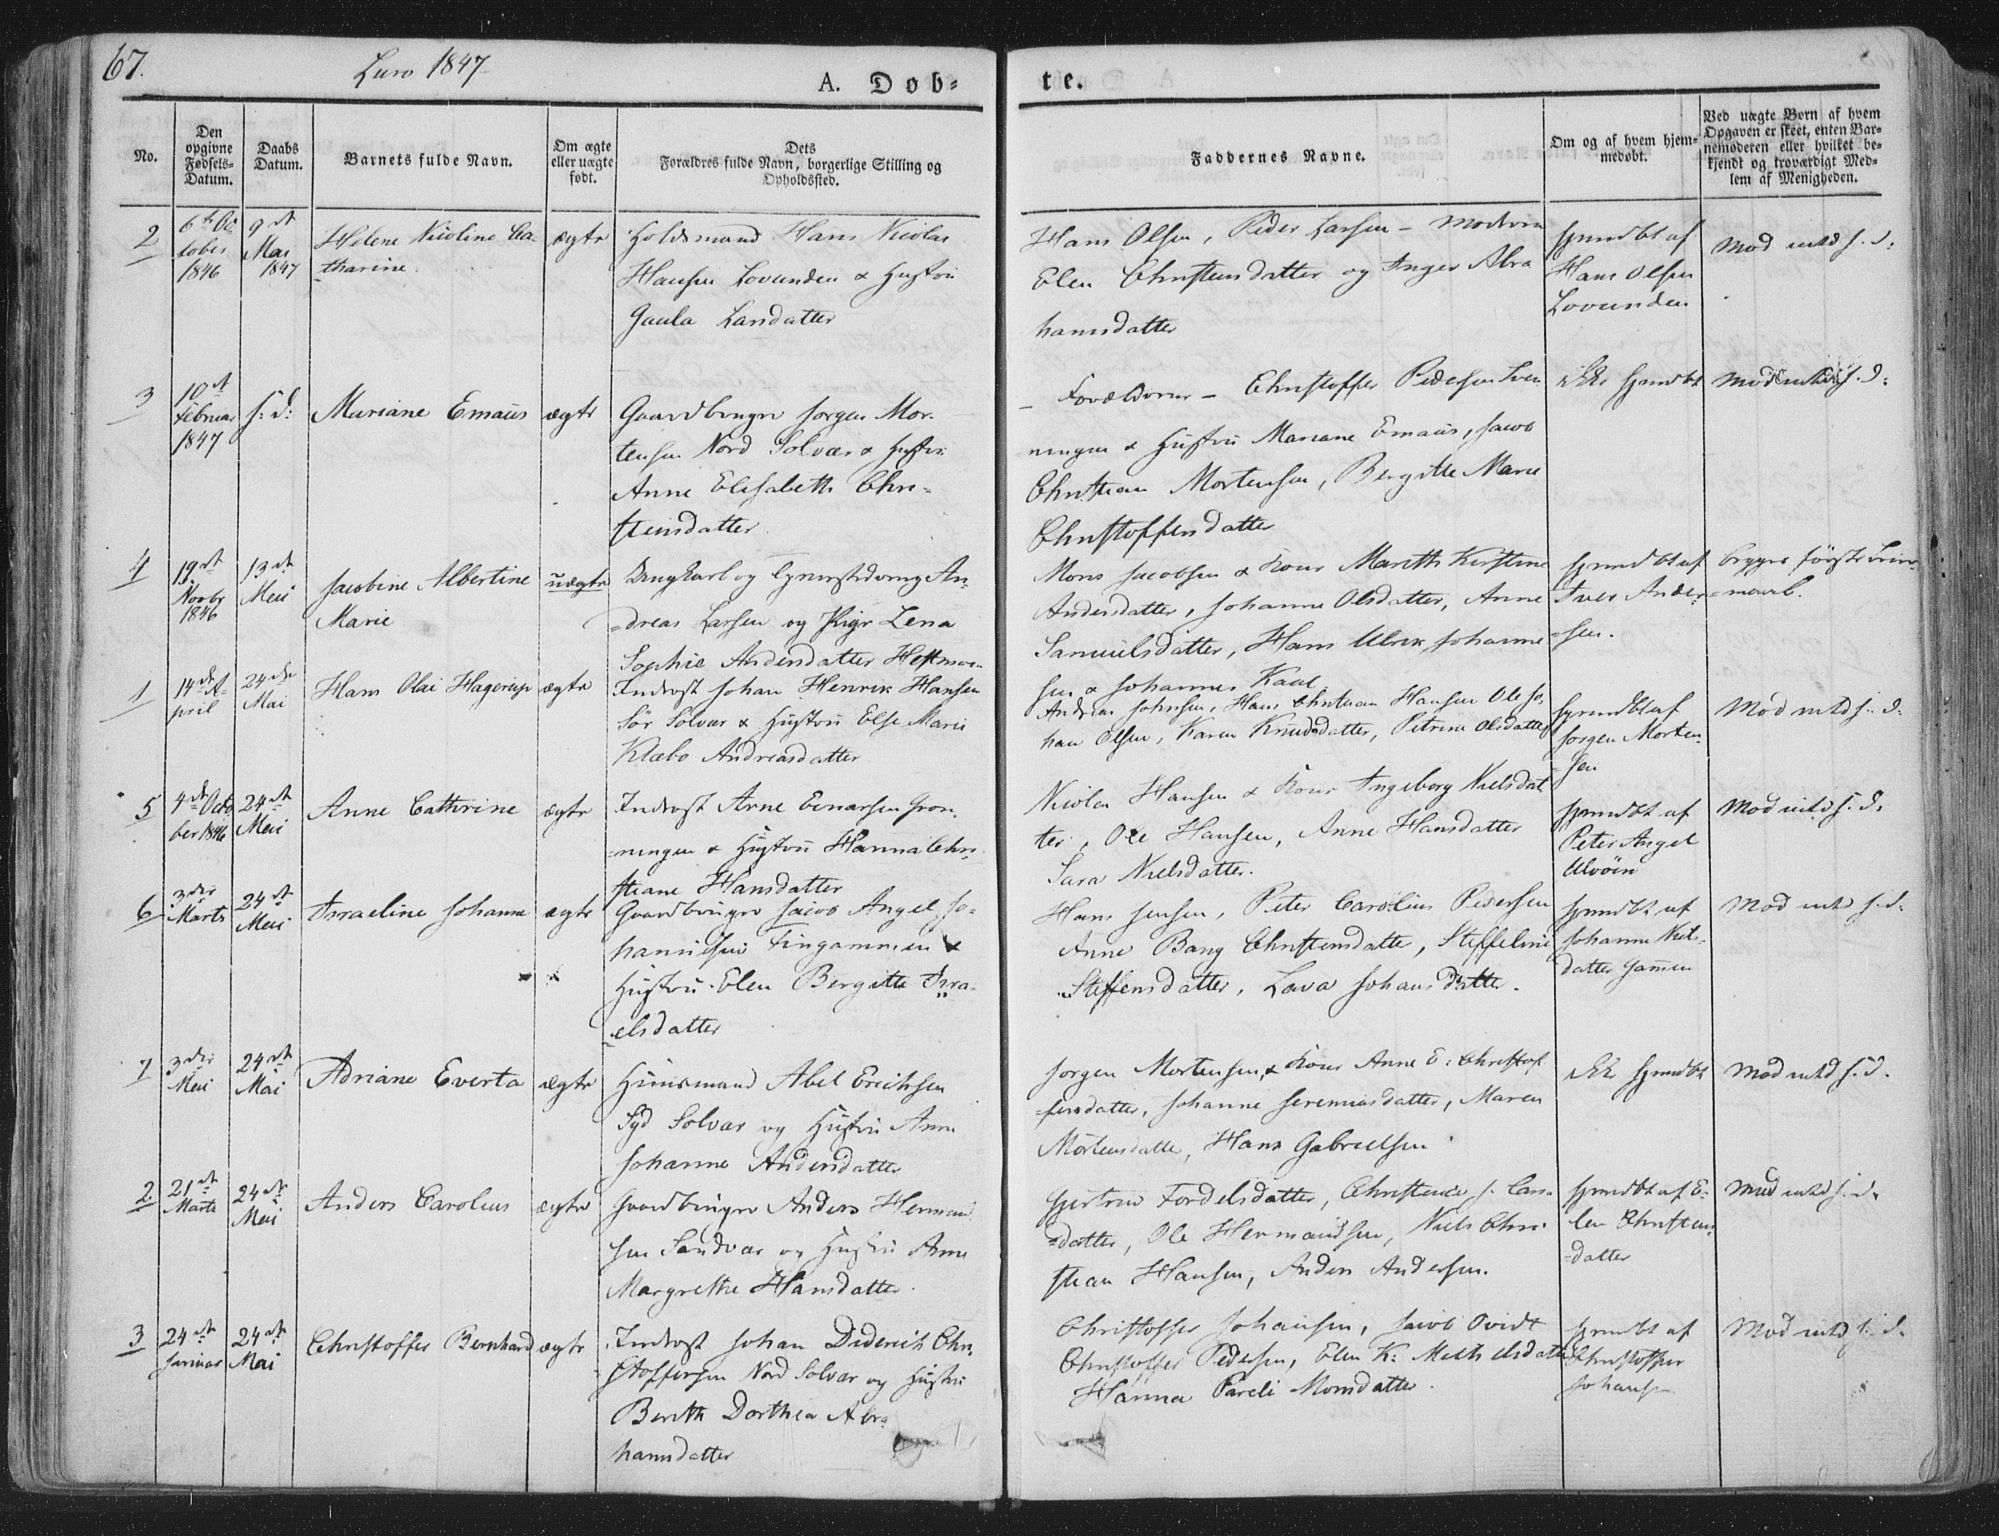 67.
Lurø 1847
A. Døb-
te.
No.
Den
opgivne
Fødsels-
Datum.
Daabs
Datum.
Barnets fulde Navn.
Om ægte
eller uægte
født.
Dets
Forældres fulde Navn, borgerlige Stilling og
Opholdssted.
Faddernes Navne.
Om og af hvem hjem-
medøbt.
Ved uægte Børn af hvem
Opgaven er skeet, enten Bar-
nemoderen eller hvilket be-
kjendt og troværdigt Med-
lem af Menigheden.
2
6th Oc
tober
1846
9de
Mai
1847
Helene Nicoline Ca-
tharine
ægte
Holdsmand Hans Nicolai
Hansen Lovunden & Hustru
Gaula Larsdatter
Hans Olsen, Peder Larsen - Moderen
Elen Christensdatter og Inger Abra
hamsdatter
hjemdbt af
Hans Olsen
Lovunden
Mod intd s. d:
3
10de
Februar
1847
s: d:
Mariane Emaus
ægte
Gaardbruger Jørgen Mor-
tensen Nord Solvær & Hustru
Anne Elisabeth Chri-
stensdatter
- Forældrene - Christoffer Pedersen
ningen & Hustru Mariane Emaus, Jacob
Christian Mortensen, Bergitte Marie
Christoffersdatter
ikke hjemdbt
Mod intd s. d:
4
19de
Novbr
1846
13de
Mai
Jacobine Albertine
Marie
uægte
Ungkarl og An-
dreas Larsen og Pige Lena
Sophie Andersdatter
Mons Jacobsen & Kone Mareth Kirstine
Andersdatter, Johanna Olsdatter, Anne
Samuelsdatter, Hans Ulrik Johanne-
sen & Johannes
hjemdbt af
Iver Ander-
sen.
begges første Leier-
maal.
1
14de A-
pril
24de
Mai
Hans Olai Hagerup
ægte
Inderst Johan Henrik Hansen
Sør Solvær & Hustru Else Marie
Klæbo Andreasdatter
Andreas Johnsen, Hans Christian Hansen Ole Jo-
han Olsen, Karen Knudsdatter, Petrine Olsdatter
hjemdbt af
Jørgen Morten-
sen
Mod intd s. d.
5
4de Octo
ber 1846
24de
Mai
Anne Cathrine
ægte
Inderst Arne Einarsen Grøn-
ningen & Hustru Hanna Chri-
stiane Hansdatter
Nicolai Hansen & Kone Ingeborg Nielsdat
ter, Ole Hansen, Anne Hansdatter
Sara Nielsdatter.
hjemdbt af
Peter Angel
Ulvøen
Mod intd s. d.
6
3die
Marts
24de
Mai
Israeline Johanna
ægte
Gaardbruger Jacob Angel Jo-
hannesen Fingammen &
Hustru Elen Bergitte Isra-
elsdatter
Hans Jensen, Peter Carolius Pedersen
Anne Bang Christensdatter, Steffeline
Steffensdatter, Lava Johansdatter.
hjemdbt af
Johanna Niels-
datter Gammen
Mod intd s. d.
7
3die
Mai
24de
Mai
Adriane Everta
ægte
Huusmand Abel Erichsen
Syd Solvær og Hustru Anne
Johanne Andersdatter
Jørgen Mortensen & Kone Anne E: Christof
fersdatter, Johanne Jeremiasdatter, Maren
Mortensdatter, Hans Gabrielsen
ikke hjemdbt
Mod intd s. d.
2
21de
Marts
24de
Mai
Anders Carolius
ægte
Gaardbruger Anders Herman
sen Sandvær og Hustru Anne
Margrethe Hansdatter.
Gjertrud Fordelsdatter, Christence J. Lars-
datter, Ole Hermansen, Niels Chri-
stian Hansen, Anders Andersen.
hjemdbt af E-
len Christens
datter
Mod intd s. d.
3
24de
Januar
24de
Mai
Christoffer Bernhard
ægte
Inderst Johan Diderich Chri-
stoffersen Nord Solvær og Hustru
Berith Dorthea Abra
hamsdatter
Christoffer Johansen, Jacob Ovidt
Christoffer Pedersen, Elen K: Mechelsdatter
Hanna Pareli Monsdatter.
hjemdbt af
Christoffer
Johansen
Mod intd s. d.